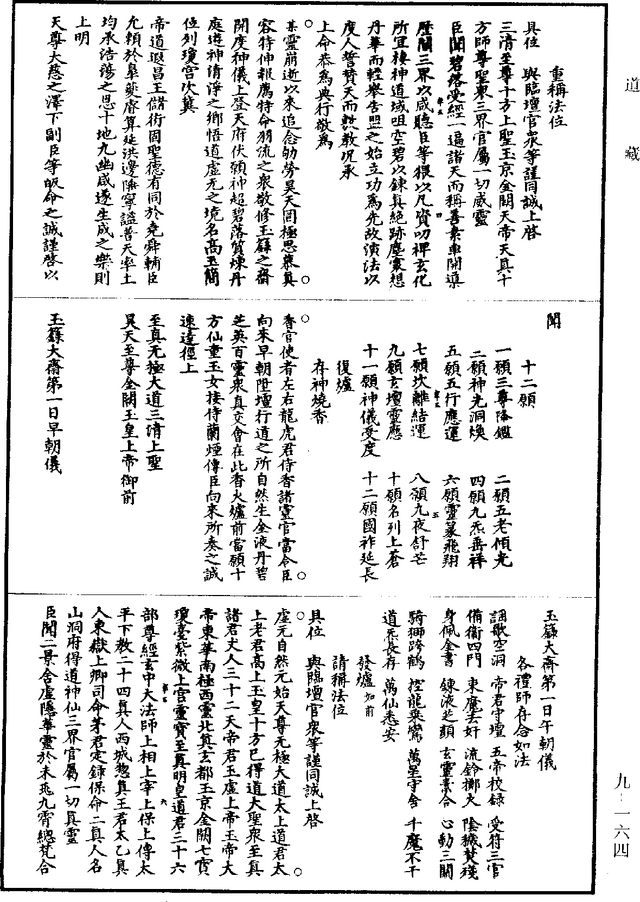 道藏
重稱法位
具位　與臨壇官衆等謹同誠上啓
三清至尊十方上聖玉京金闕天帝天真十
方師尊聖東三界官屬一切威靈
臣聞碧落受經一遍諸天而稱善素車開導
歷關三界以咸聽臣等猥以凡資叨裨玄化
所宜棲神道域咀空碧以鍊真絕跡塵囂想
丹華而輕舉告盟之始立功爲先故演法以
度人誓贊天而懋教况承
上命恭爲典行歛爲
某靈崩逝以來追念劬勞昊天罔極思慕真
容特伸報薦特命羽流之衆敬修玉籙之齋
開度神儀上登天府伏願神超碧落質煉丹
庭遊神清淨之鄉悟道虛无之境名高玉簡
位列瓊宮次冀
帝道遐昌王儲衍固聖德有同於堯舜輔臣
允賴於皋夔睿算延洪邊陲寧謐普天率土
均承浩蕩之恩十地九幽咸遂生成之樂則
上明
天尊大慈之澤下副臣等皈命之誠謹啓以
聞
十二願
一願三尊降鑑　二願五老傾光
三願神光洞煥　四願九炁垂祥
五願五行應運　六願靈篆飛翔
七願坎離結運　八願九夜舒芒
九願玄壇靈應　十願名列上蒼
十一願神儀受度　十二願國祚延長
復爐
存神燒香
香官使者左右龍虎君侍香諸靈官當令臣
向來早朝陞壇行道之所自然生金液丹碧
芝英百靈衆真交會在此香火爐前當願十
方仙童玉女接侍蘭煙傳臣向來所奏之誠
速達徑上
至真无極大道三清上聖
昊天至尊金闕玉皇上帝御前
玉籙大齋第一日早朝儀
玉籙大齋第一日午朝儀
各禮師存念如法
謳歌空洞　帝君守壇　五帝校錄　受符三官
備衛四門　東魔去奸　流鈴擲火　陰穢焚殘
身佩金書　鍊液芝顏　玄靈素合　心動三關
騎獅跨鶴　控龍乘鸞　萬星守舍　千魔不干
道炁長存　萬仙悉安
發爐如前
請稱法位
具位　與臨壇官衆等謹同誠上啓
虛元自然元始天尊无極大道太上道君太
上老君高上玉皇十方已得道大聖衆至真
諸君丈人三十二天帝君玉虛上帝玉帝大
帝東華南極西靈北真玄都玉京金闕七寶
瓊臺紫微上宮靈寶至真明皇道君三十六
部尊經玄中大法師上相上宰上保上傅太
平下教二十四真人西城總真王君太乙真
人東嶽上卿司命茅君定錄保命二真人名
山洞府得道神仙三界官屬一切真靈
臣聞二景含虛隱華靈於未兆九霄總梵合
九—一六四